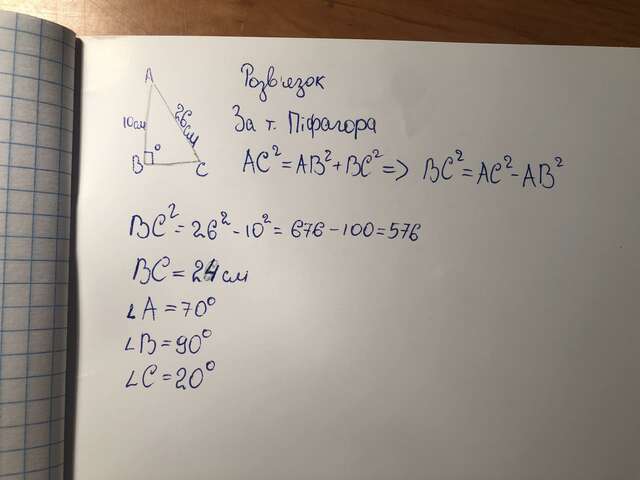 Розв'язок
A
10см
26 см
B
C
За т. Піфагора
AC² = AB² + BC² => BC² = AC² - AB²
BC² = 26² - 10² = 676 - 100 = 576
BC = 24 см
∠A = 70°
∠B = 90°
∠C = 20°